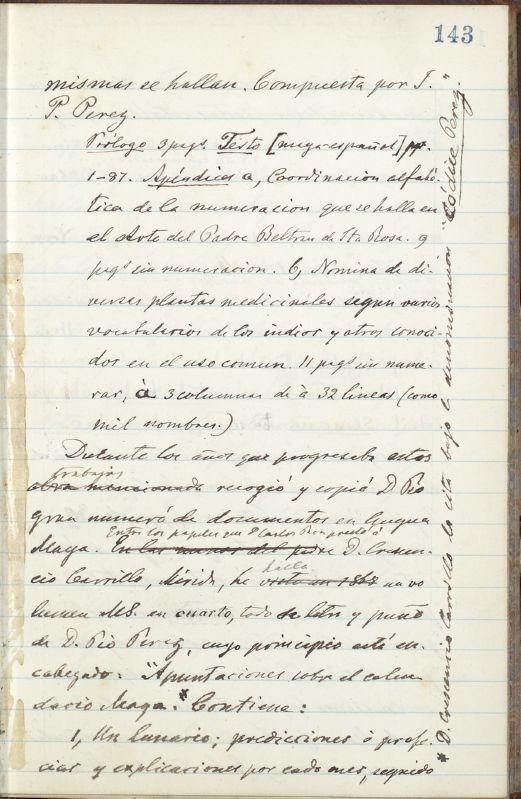 143
mismas se hallan. Compuesta por J.
P. Perez.
Prólogo 3 pags. Testo [maya-español] pp.
1-87. Apéndices a, Coordinacion alfabé-
tica de la numeracion que se halla en
el Arte del Padre Beltran de Sta Rosa. 9
pags sin numeracion. b, Nomina de di-
versas plantas medicinales segun varios
vocabularios de los indios y otros conoci-
dos en el uso comun. 11 pags sin nume-
rar, à 3 columnas de à 32 lineas (como
mil nombres.)
Durante los años que progresaba estos
trabajos
obra mencionada recogió y copió D Pio
gran numero de documentos en lengua
Entre los papeles que D Carlos Peon prestó á
Maya. En las manos del padre D. Crescen-
halla
cio Carrillo, Mérida, he visto en 1868 un vo
lumen MS. en cuarto, todo de letra y puño
de D. Pio Perez, cuyo principio está en-
cabezado: "Apuntaciones sobre el calen
dario Maya.* Contiene:
1, Un lunario; predicciones ò profe-
cias y explicaciones por cada mes, seguido
* D. Crescencio Carrillo lo cita bajo la denominacion "Códice Perez."